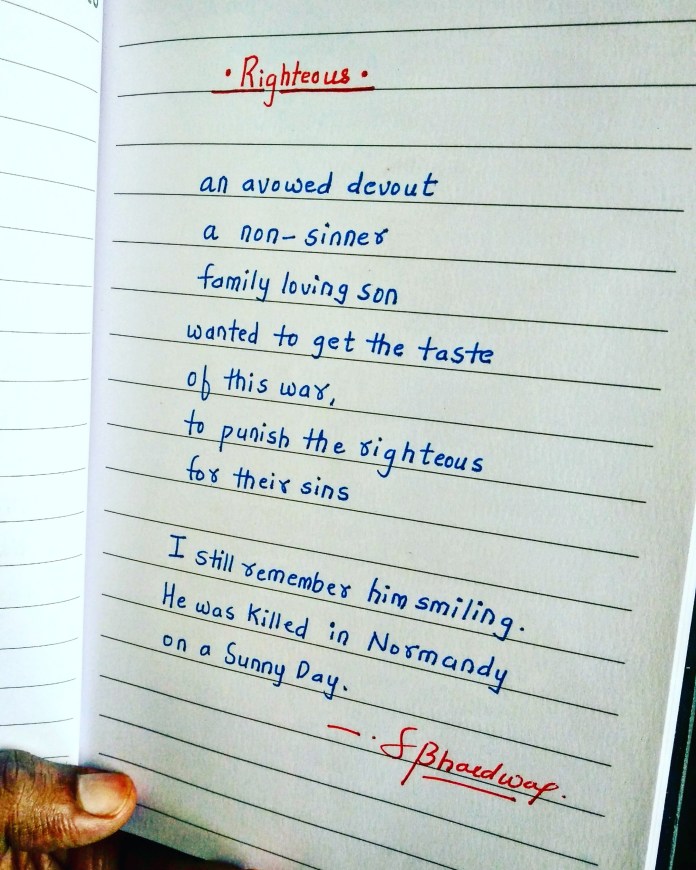 • Righteous •
an avowed devout
a non-sinner
family loving son
wanted to get the taste
of this war,
to punish the righteous
for their sins
I still remember him smiling.
He was Killed in Normandy
on a Sunny Day.
— . SBhardwaj.